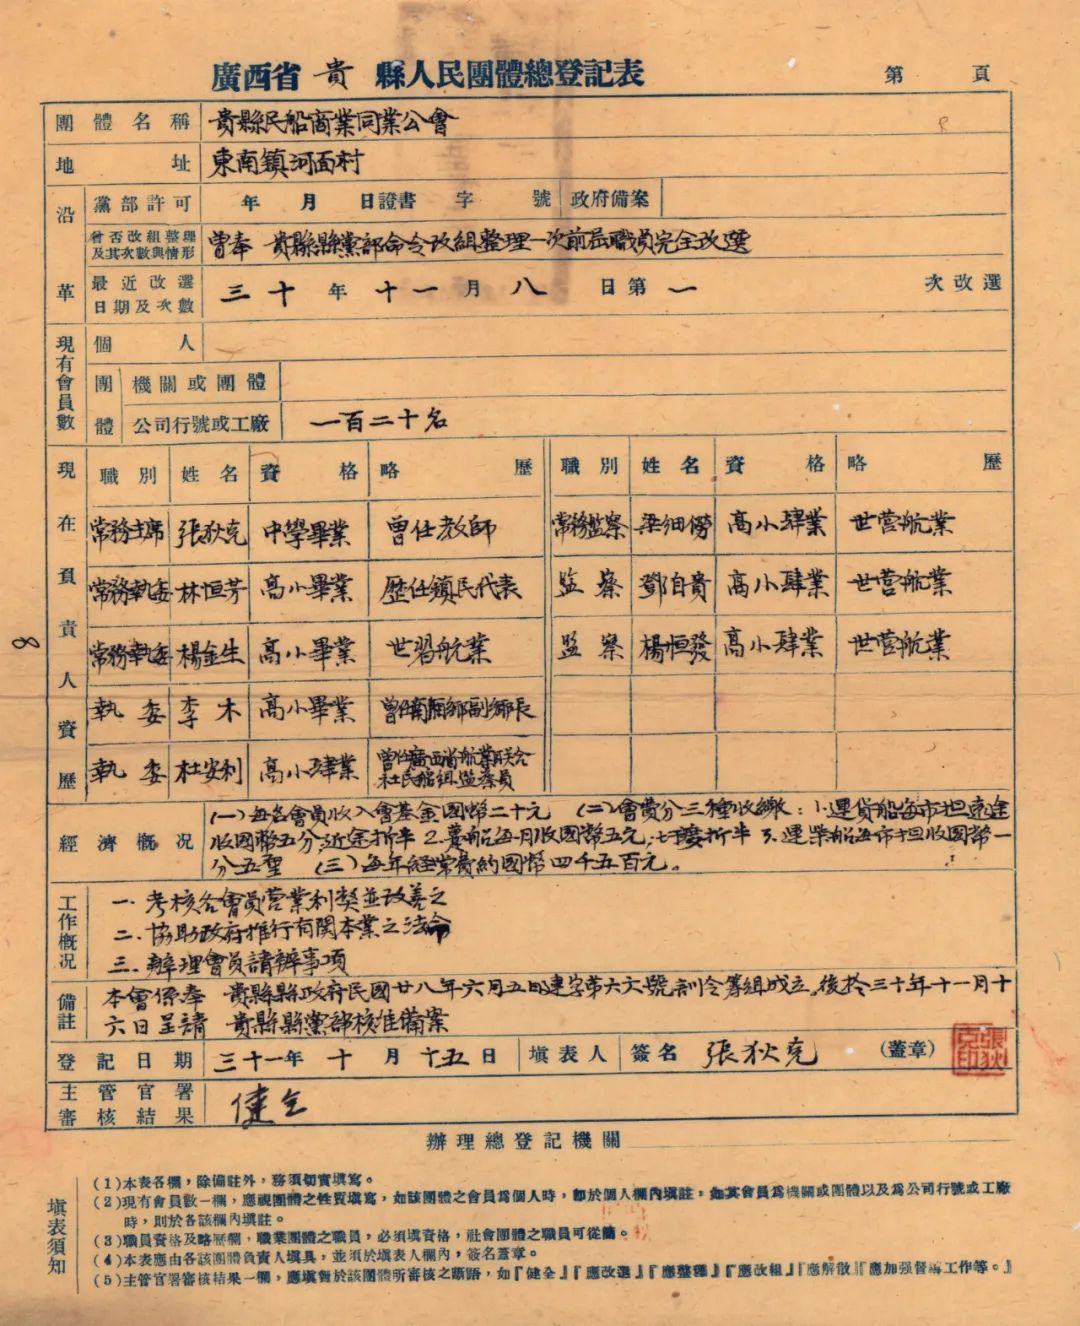 廣西省 貴 縣人民團體總登記表
第 頁
團體名稱 貴縣民船商業同業公會
地址 東南鎮河面村
沿革
黨部許可 年 月 日證書 字 號 政府備案
曾否改組整理及其次數與情形 曾奉 貴縣縣黨部命令改組整理一次前屆職員完全改選
最近改選日期及次數 三十年十一月八日第一次改選
現有會員數
個人
團體 機關或團體
公司行號或工廠 一百二十名
現在負責人資歷
職別 姓名 資格 略歷 職別 姓名 資格 略歷
常務主席 張狄克 中學畢業 曾任教師 常務監察 梁細僗 高小肆業 世營航業
常務執委 林恒芳 高小畢業 歷任鎮民代表 監察 鄧自貴 高小肆業 世營航業
常務執委 楊金生 高小畢業 世習航業 監察 楊恒發 高小肆業 世營航業
執委 李木 高小畢業 曾任南 鄉副鄉長
執委 杜安利 高小肆業 曾任廣西省航業联合
社民船組監察員
經濟概况
(一)每名會員收入會基金國幣二十元 (二)會費分三種收繳:1.運貨船每市担遠途
收國幣五分,近途折半 2. 船每月收國幣五元, 折半 3.運柴船每市担收國幣一
分五 (三)每年經常費約國幣四千五百元。
工作概况
一.考核各會員營業利獘並改善之
二.協助政府推行有関本業之法命
三.辦理會員請辦事項
備註
本會係奉 貴縣縣政府民國廿八年六月五日建字第六六號訓令籌組成立。後於三十年十一月十
六日呈請 貴縣縣黨部核准備案
登記日期 三十一年十月十五日 填表人 簽名 張狄克 (蓋章)
張狄克印
主管官署審核結果 健全
辦理總登記機關
8
填表須知
(1)本表各欄,除備註外,務須切實填寫。
(2)現有會員數一欄,應視團體之性質填寫,如該團體之會員為個人時,卽於個人欄內填註,如其會員為機關或團體以及為公司行號或工廠
時,則於各該欄內填註。
(3)職員資格及略歷欄,職業團體之職員,必須填資格,社會團體之職員可從簡。
(4)本表應由各該團體負責人填具,並須於填表人欄內,簽名蓋章。
(5)主管官署審核結果一欄,應填註於該團體所審核之 語,如『健全』『應改選』『應整理』『應改組』『應解散』『應加强督導工作等。』